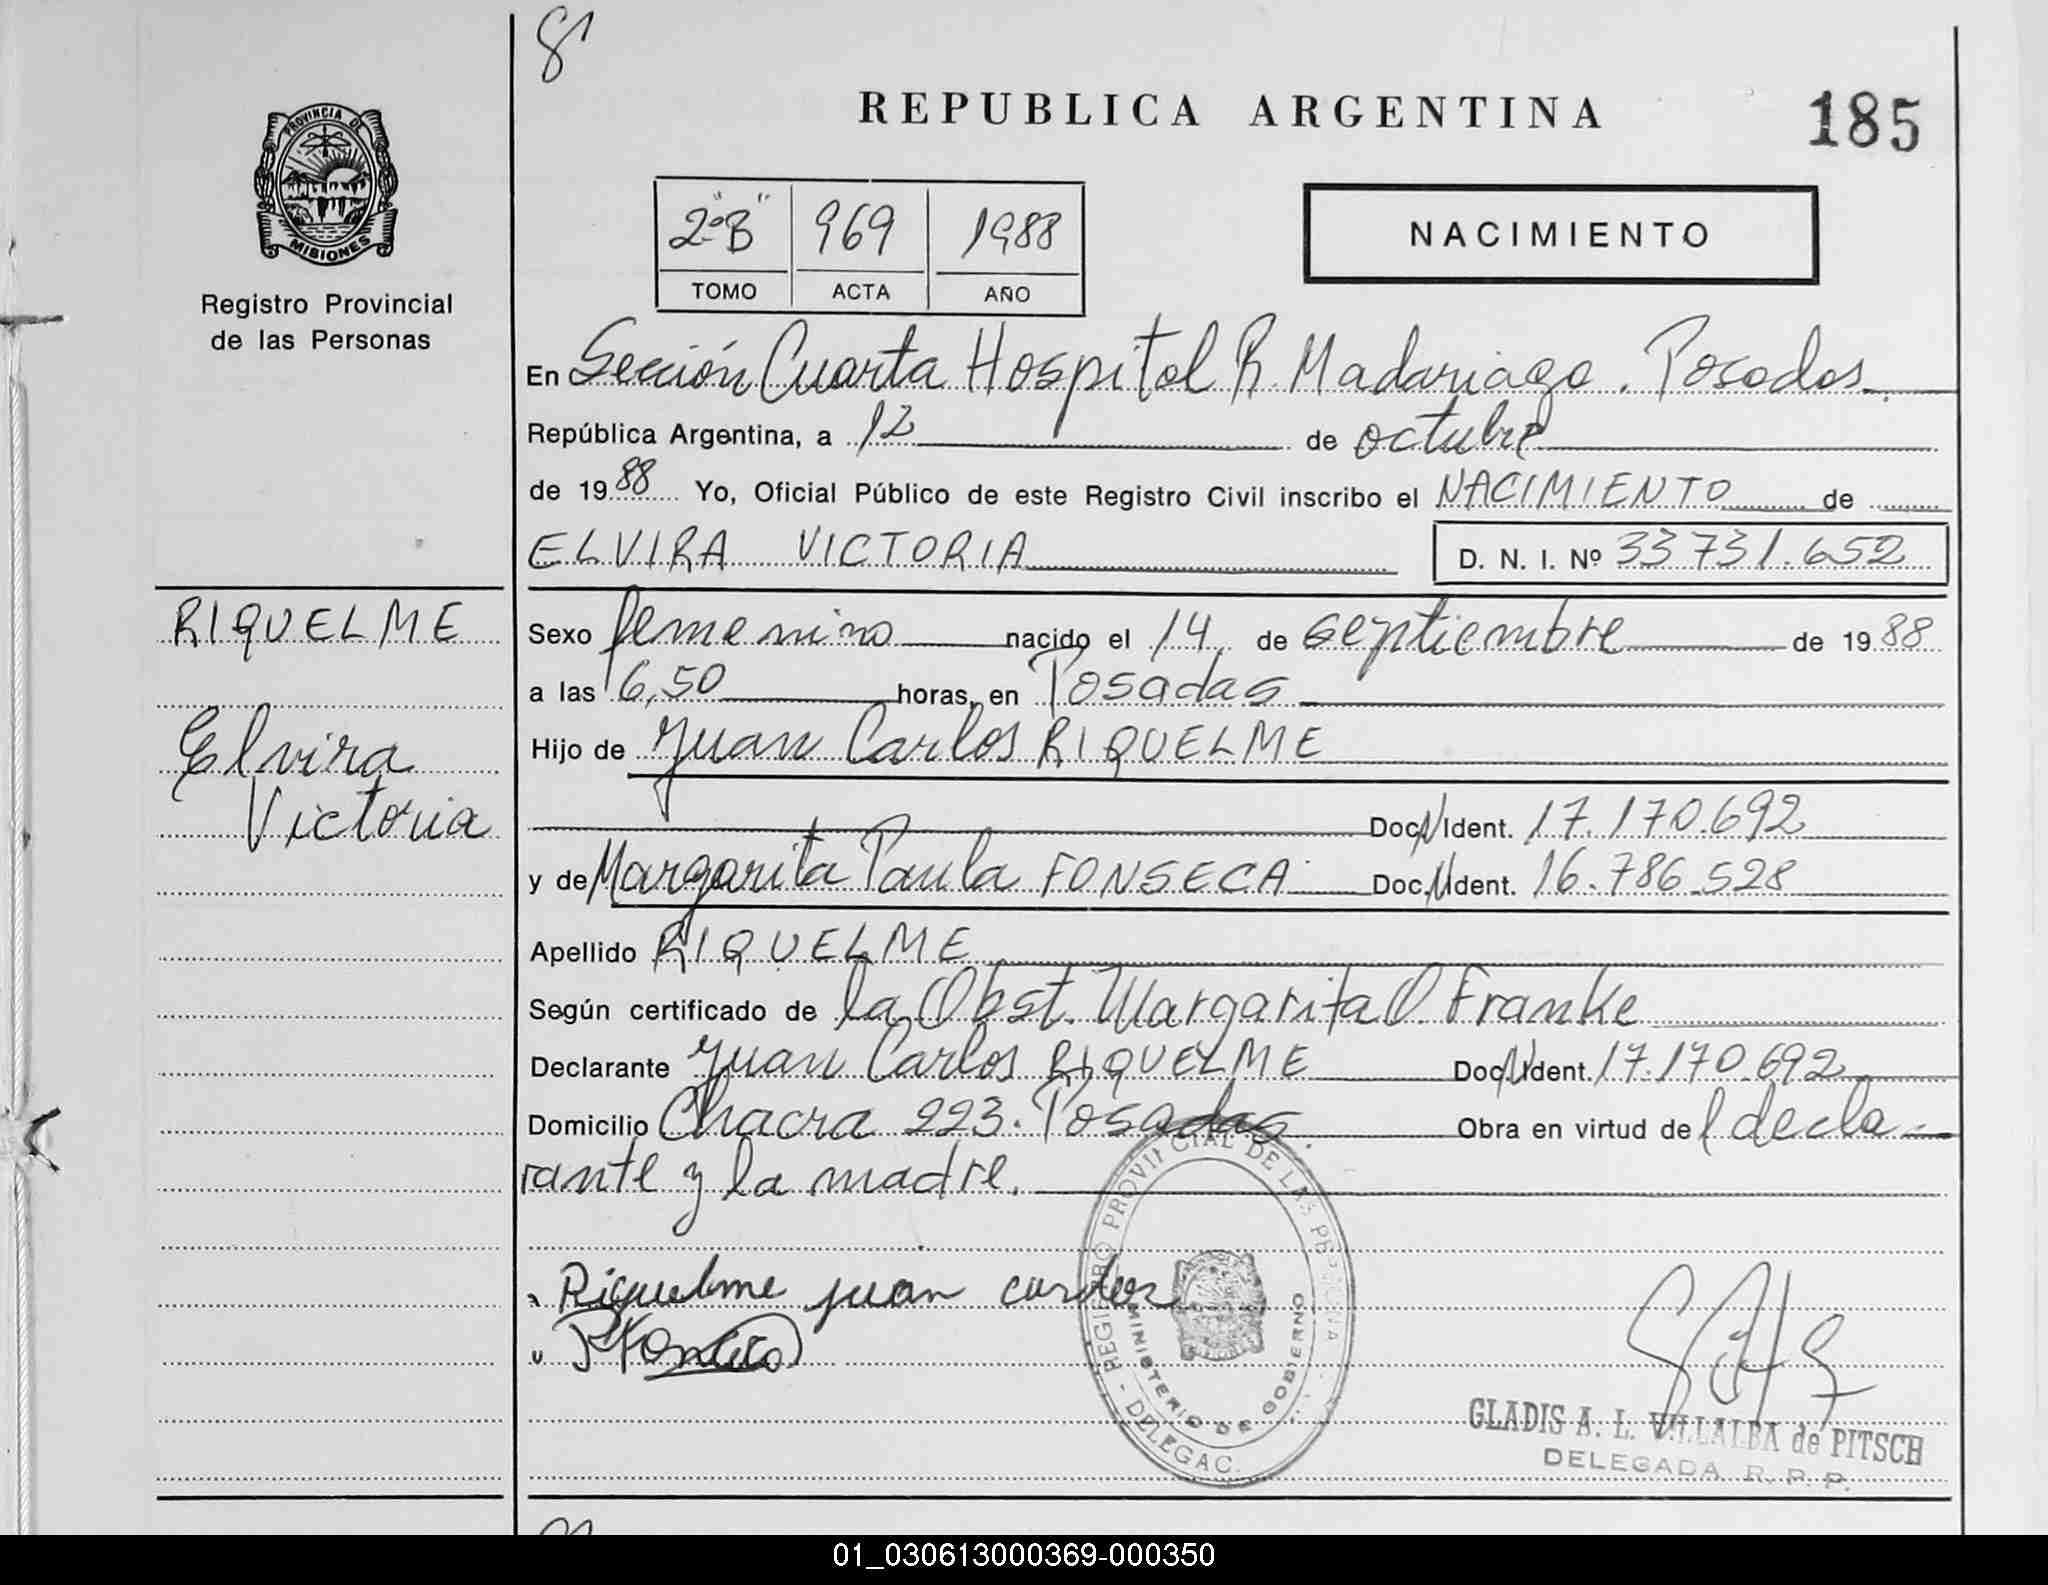 8
REPUBLICA ARGENTINA
185
PROVINCIA DE
MISIONES
Registro Provincial
de las Personas
2º "B" 969 1988
TOMO ACTA AÑO
NACIMIENTO
En Sección Cuarta Hospital R. Madariaga. Posadas
República Argentina, a 12 de octubre
de 1988 Yo, Oficial Público de este Registro Civil inscribo el NACIMIENTO de
ELVIRA VICTORIA D. N. I. Nº 33731.652
RIQUELME
Elvira
Victoria
Sexo femenino nacido el 14 de septiembre de 1988
a las 16,50 horas, en Posadas
Hijo de Juan Carlos RIQUELME
Doc. N Ident. 17.170.692
y de Margarita Paula FONSECA Doc. N Ident. 16.786.528
Apellido RIQUELME
Según certificado de la Obst. Margarita O. Franke
Declarante Juan Carlos RIQUELME Doc. N Ident. 17.170.692
Domicilio Chacra 223. Posadas. Obra en virtud de l decla-
rante y la madre.
Riquelme juan carlos
REGISTRO PROVINCIAL DE LAS PERSONAS - DELEGAC.
MINISTERIO DE GOBIERNO
GLADIS A. L. VILLALBA de PITSCH
DELEGADA R. P. P.
01_030613000369-000350